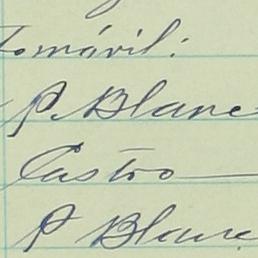 Tomávil:
P. Blanc
Castro
P Blanc